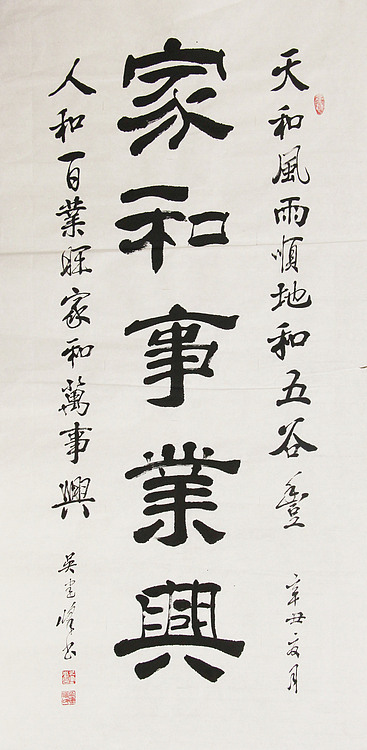 天和風雨順地和五谷豐
辛丑夏月
家和事業興
人和百業旺家和萬事興
吴建
书